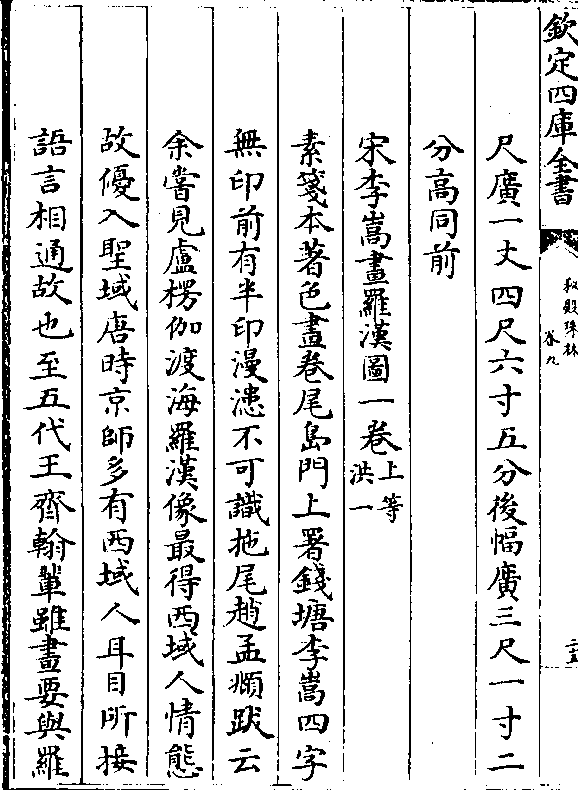 欽定四庫全書
秘殿珠林
卷九
尺廣一丈四尺六寸五分後幅廣三尺一寸二
分高同前
宋李嵩畫羅漢圖一卷上等洪一
素箋本著色畫卷尾島門上署錢塘李嵩四字
無印前有半印漫漶不可識拖尾趙孟頫跋云
余嘗見盧楞伽渡海羅漢像最得西域人情態
故優入聖域唐時京師多有西域人耳目所接
語言相通故也至五代王齊翰輩雖畫要與羅